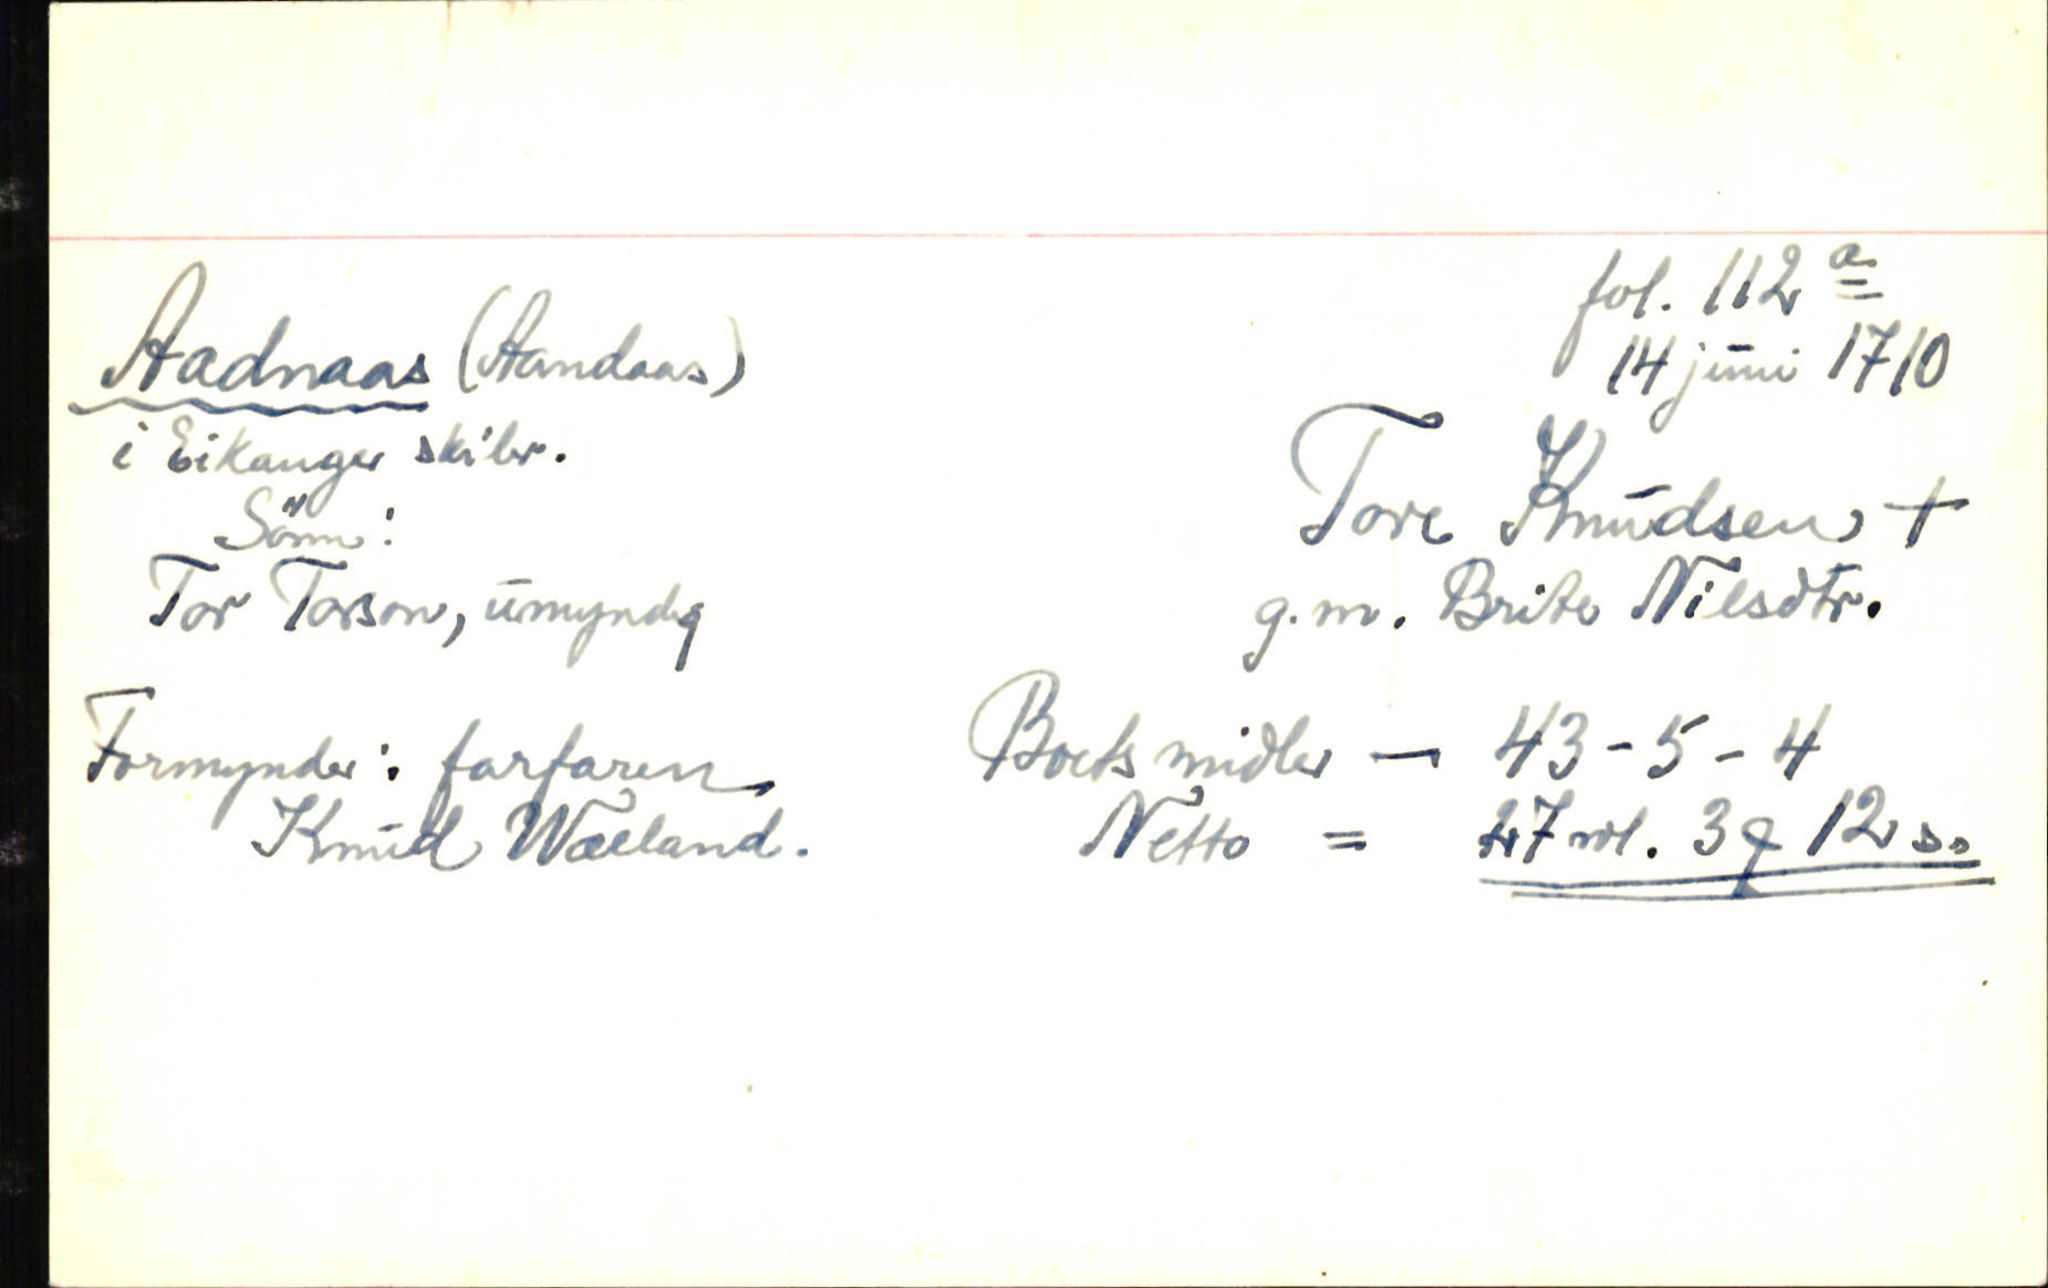 fol. 112 a
14 juni 1710
Aadnaas (Aandaas)
i Eikanger skibr.
Tore Knudsen +
Sönn:
g.m. Brite Nilsdtr.
Tor Torson, umyndig
Formynder: farfaren
Knud Wæland.
Boets midler — 43-5-4
Netto = 27 rdl. 3 q 12 s.